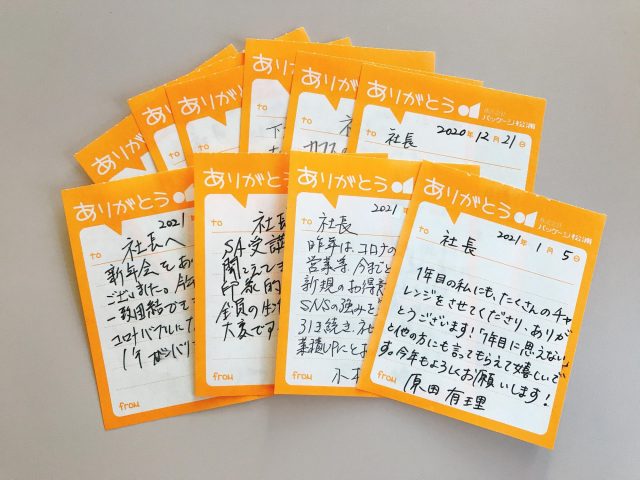 ありがとう
ありがとう
ありがとう
to
ありがとう
to
ありがとう
株式会社
パッケージ松浦
to 社長
2020年 12月 21日
ありがとう
2021
to 社長へ
新年会をあ
ございました。
一致団結でモ
コロナ
from
ありがとう
to 社長
SA受講
聞こえてき
印象的
全員の
大変です
from
ありがとう
2021
to 社長
昨年は、コロナの
営業等、今まで
新規のお得意
SNSの強み
引き続き、社
業績UPに
from
ありがとう
株式会社
パッケージ松浦
to 社長
2021年 1月 5日
1年目の私にも、たくさんのチャ
レンジをさせてくださり、ありが
とうございます!「1年目に思えない」
と他の方にも言ってもらえて嬉しいで
す。今年もよろしくお願いします!
from 原田 有理